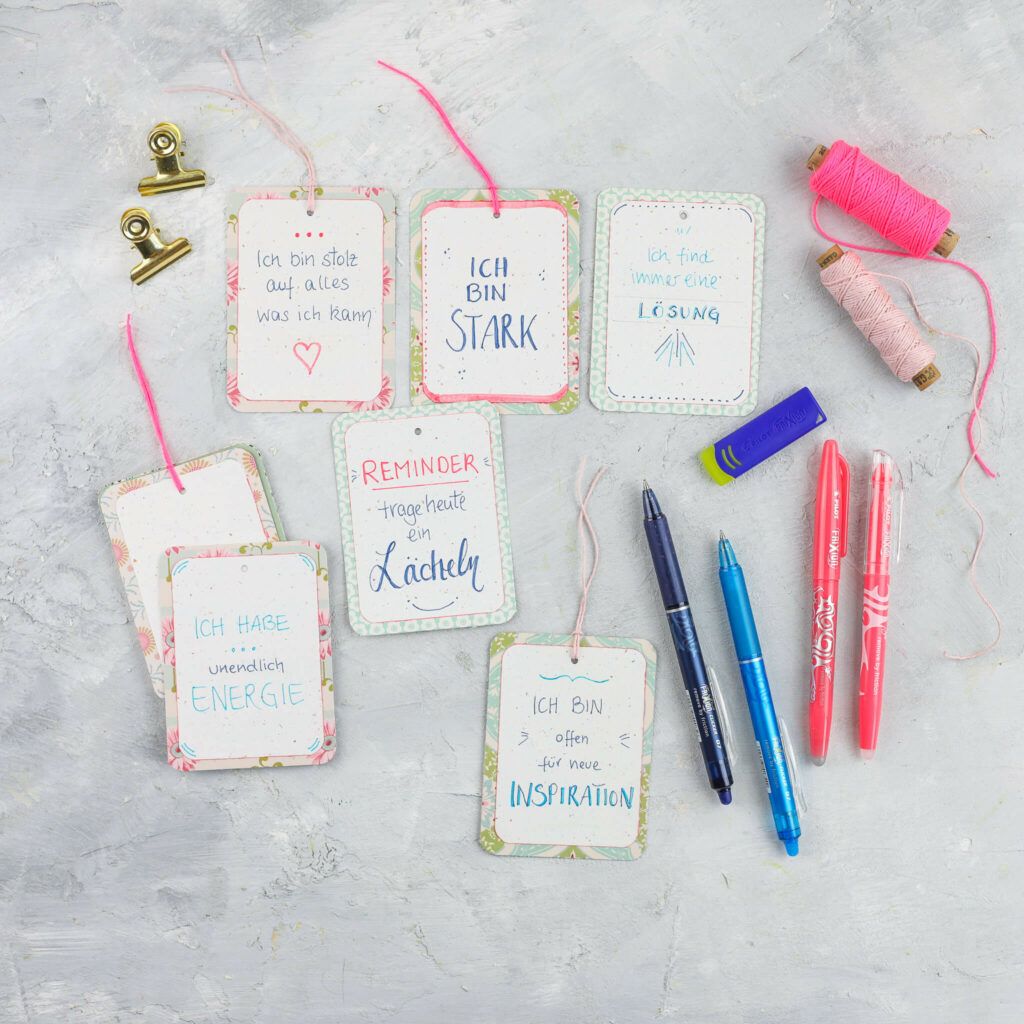 Ich bin stolz
auf alles
was ich kann
ICH
BIN
STARK
Ich find
immer eine
LÖSUNG
REMINDER
trage heute
ein
Lächeln
ICH HABE
unendlich
ENERGIE
ICH BIN
offen
für neue
INSPIRATION
FRIXION
PILOT
FRIXION
remove by friction